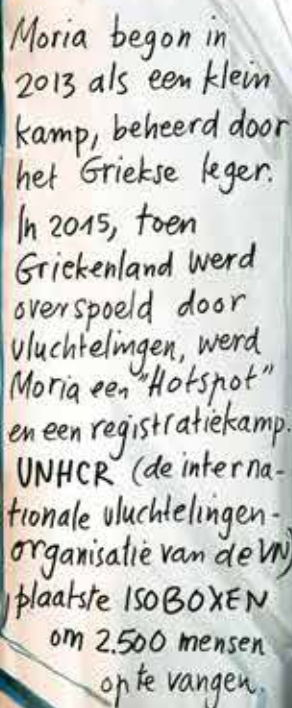 Moria begon in
2013 als een klein
kamp, beheerd door
het Griekse leger.
In 2015, toen
Griekenland werd
overspoeld door
vluchtelingen, werd
Moria een "Hotspot"
en een registratiekamp.
UNHCR (de interna-
tionale vluchtelingen-
organisatie van de VN)
plaatste ISOBOXEN
om 2.500 mensen
op te vangen.